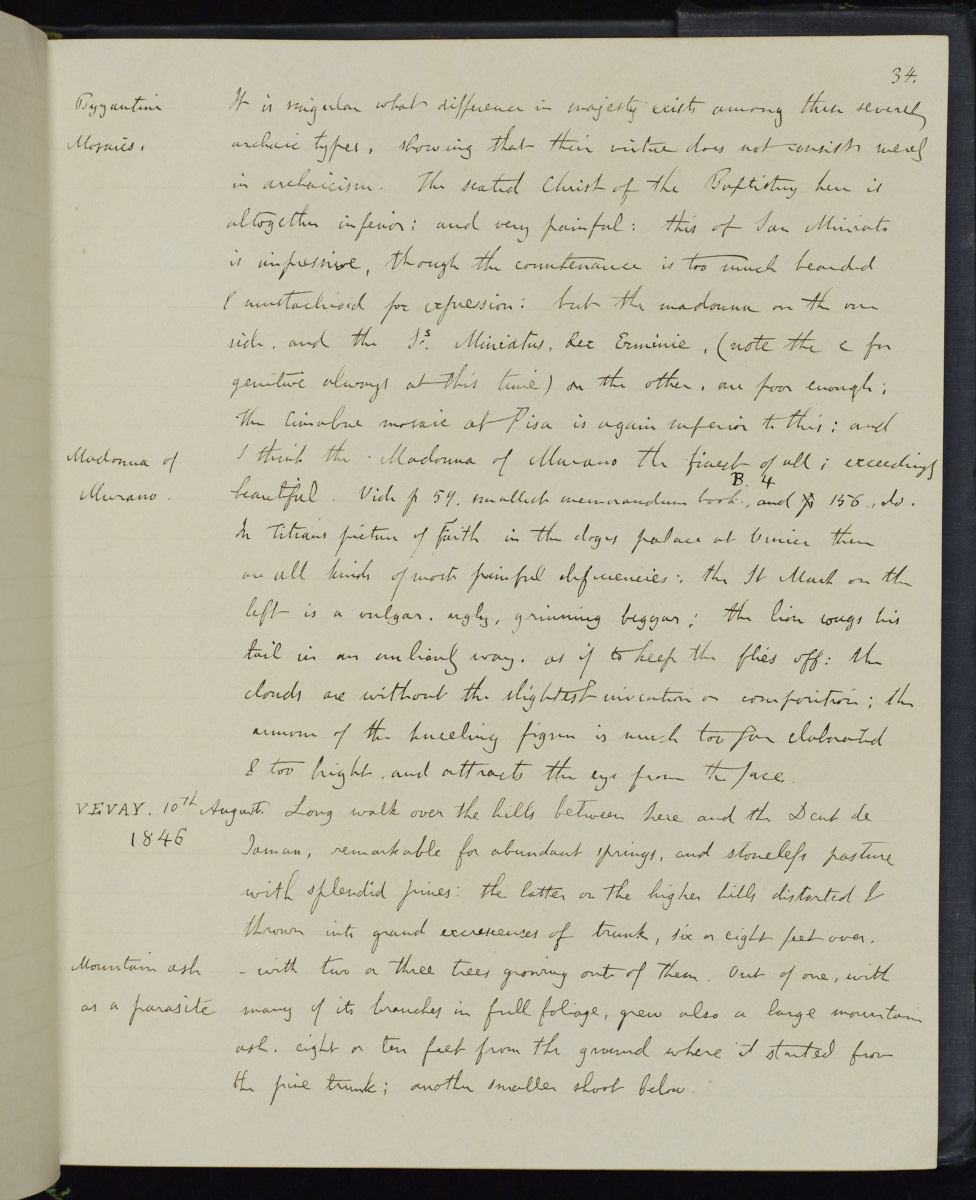 34.
Byzantine It is singular what difference in majesty exists among these severely
Mosaics. archaic types, showing that their virtue does not consist merely
in archaicism. The seated Christ of the Baptistery here is
altogether inferior: and very painful: this of San Miniato
is impressive, though the countenance is too much bearded
& mustachioed for expression: but the madonna on the one
side, and the Ss. Miniatus, Rex Erminie, (note the e for
genitive always at this time) on the other, are poor enough;
the Cimabue mosaic at Pisa is again superior to this; and
Madonna of I think the Madonna of Murano the finest of all; exceedingly
Murano. beautiful. Vide p 59. smallest memorandum book B. 4, and p 156, do.
In Titians picture of Faith in the doges palace at Venice there
are all kinds of most painful deficiencies: the St Mark on the
left is a vulgar, ugly, grinning beggar; the lion wags his
tail in an unlionly way, as if to keep the flies off: the
clouds are without the slightest invention or composition; the
armour of the kneeling figure is much too far elaborated
& too bright, and attracts the eye from the face.
VEVAY. 10th August. Long walk over the hills between here and the Dent de
1846 Jaman, remarkable for abundant springs, and stoneless pasture
with splendid pines: the latter on the higher hills distorted &
thrown into grand excrescenses of trunk, six or eight feet over.
Mountain ash - with two or three trees growing out of them. Out of one, with
as a parasite many of its branches in full foliage, grew also a large mountain
ash. eight or ten feet from the ground where it started from
the pine trunk; another smaller shoot below.